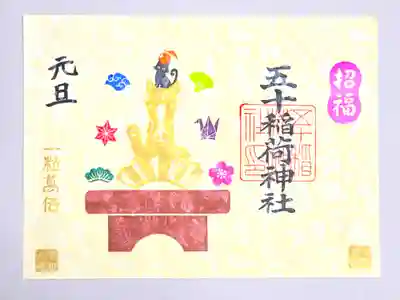 招福
五十稲荷神社
元旦
一粒萬倍